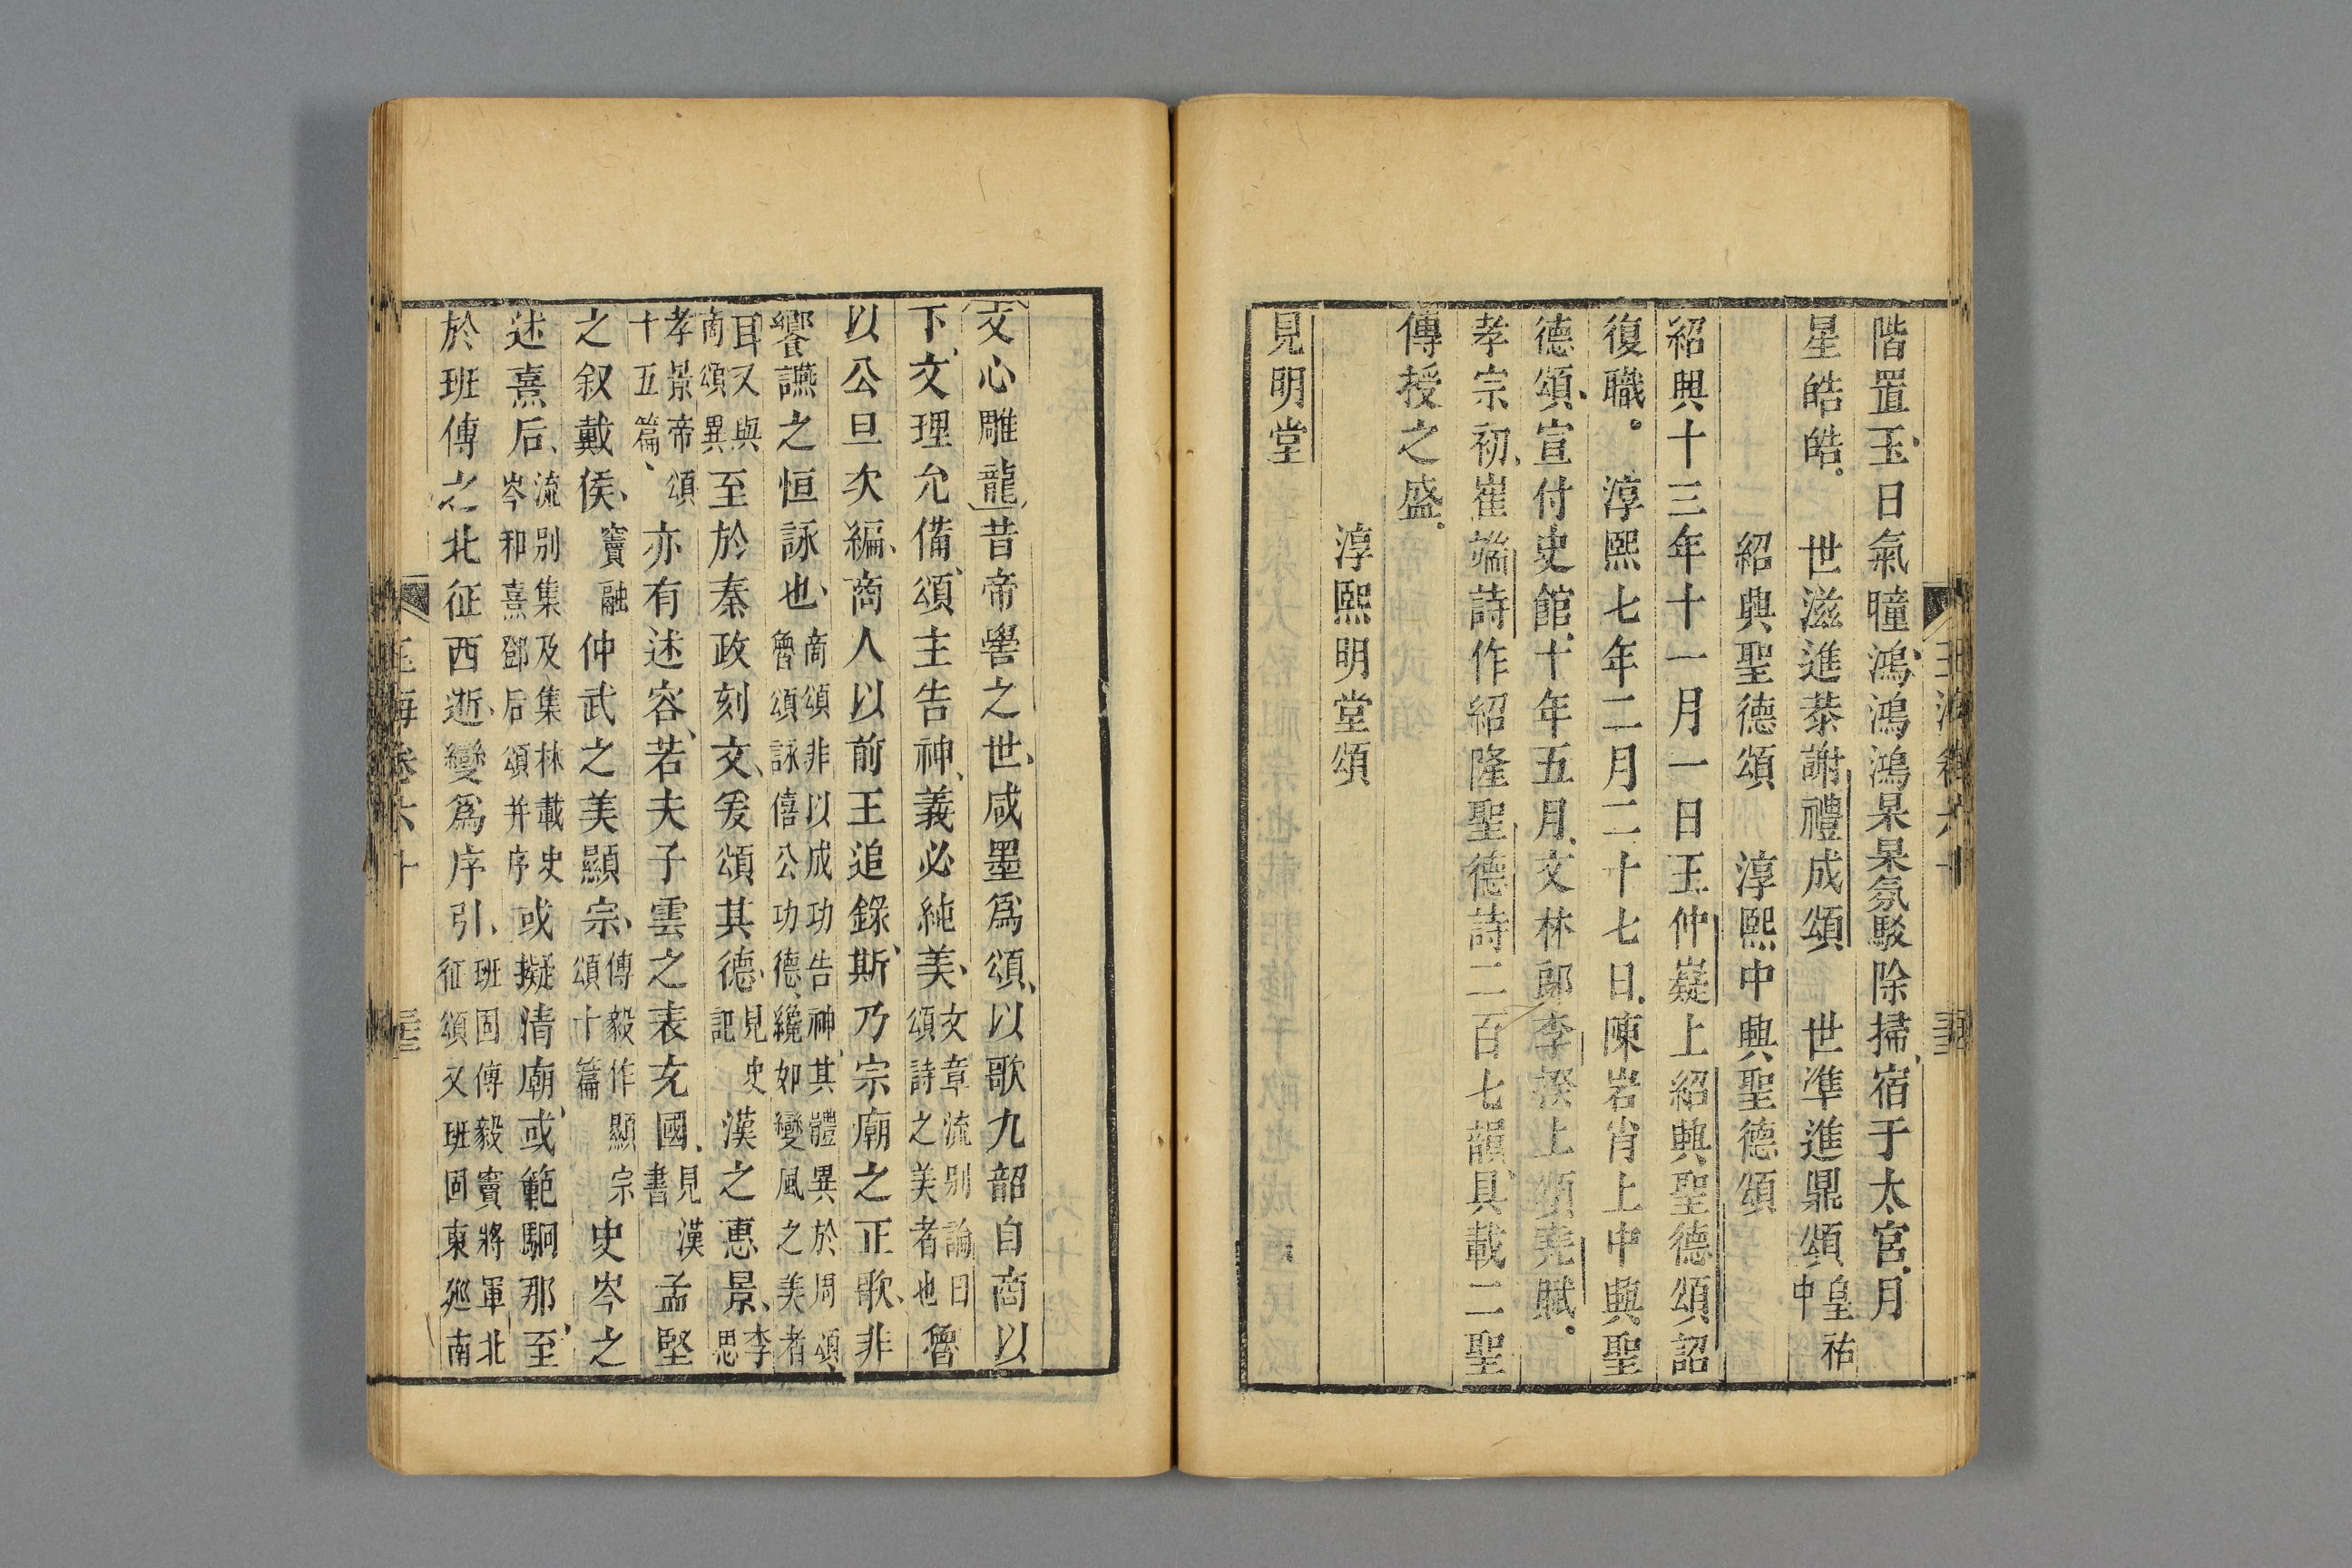 階置玉日氣曈鴻鴻鴻杲杲氛駁除掃宿于太宮月
星皓皓 世滋進恭謝禮成頌 世準進鼎頌皇祐中
紹興聖德頌 淳熙中興聖德頌
紹興十三年十一月一日王仲嶷上紹興聖德頌詔
復職 淳熙七年二月二十七日陳岩肖上中興聖
德頌宣付史館十年五月文林郎李揆上頌堯賦
孝宗初崔端詩作紹隆聖德詩二百七韻具載二聖
傳授之盛
淳熙明堂頌
見明堂
文心雕龍昔帝嚳之世咸墨爲頌以歌九韶自商以
下文理允備頌主告神義必純美文章流别論曰頌詩之美者也魯
以公旦次編商人以前王追錄斯乃宗廟之正歌非
饗讌之恒詠也商頌非以成功告神其體異於周頌魯頌詠僖公功德纔如變風之美者
耳又與商頌異至於秦政刻文爰頌其德見史記漢之惠景李思
孝景帝頌十五篇亦有述容若夫子雲之表充國見漢書孟堅
之叙戴侯竇融仲武之美顯宗傅毅作顯宗頌十篇史岑之
述熹后流别集及集林載史岑和熹鄧后頌并序或擬清廟或範駉那至
於班傅之北征西逝變爲序引班固傅毅竇將軍北征頌又班固東廵南
玉海卷六十